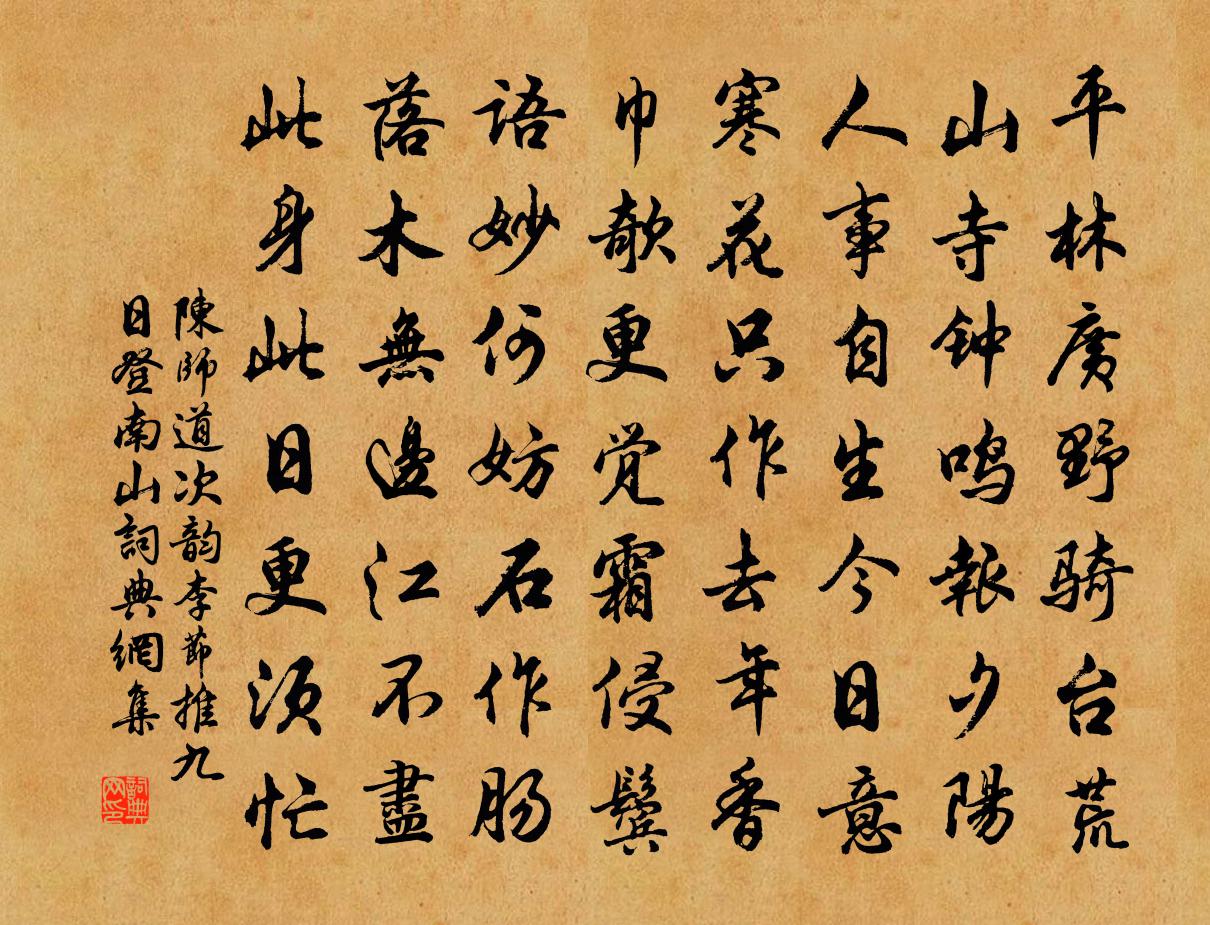 平林廣野骑台荒
山寺钟鸣報夕陽
人事自生今日意
寒花只作去年香
巾欹更觉霜侵鬓
語妙何妨石作肠
落木無邊江不盡
此身此日更須忙
陳師道次韵李節推九
日登南山詞典網集
詞典
网印